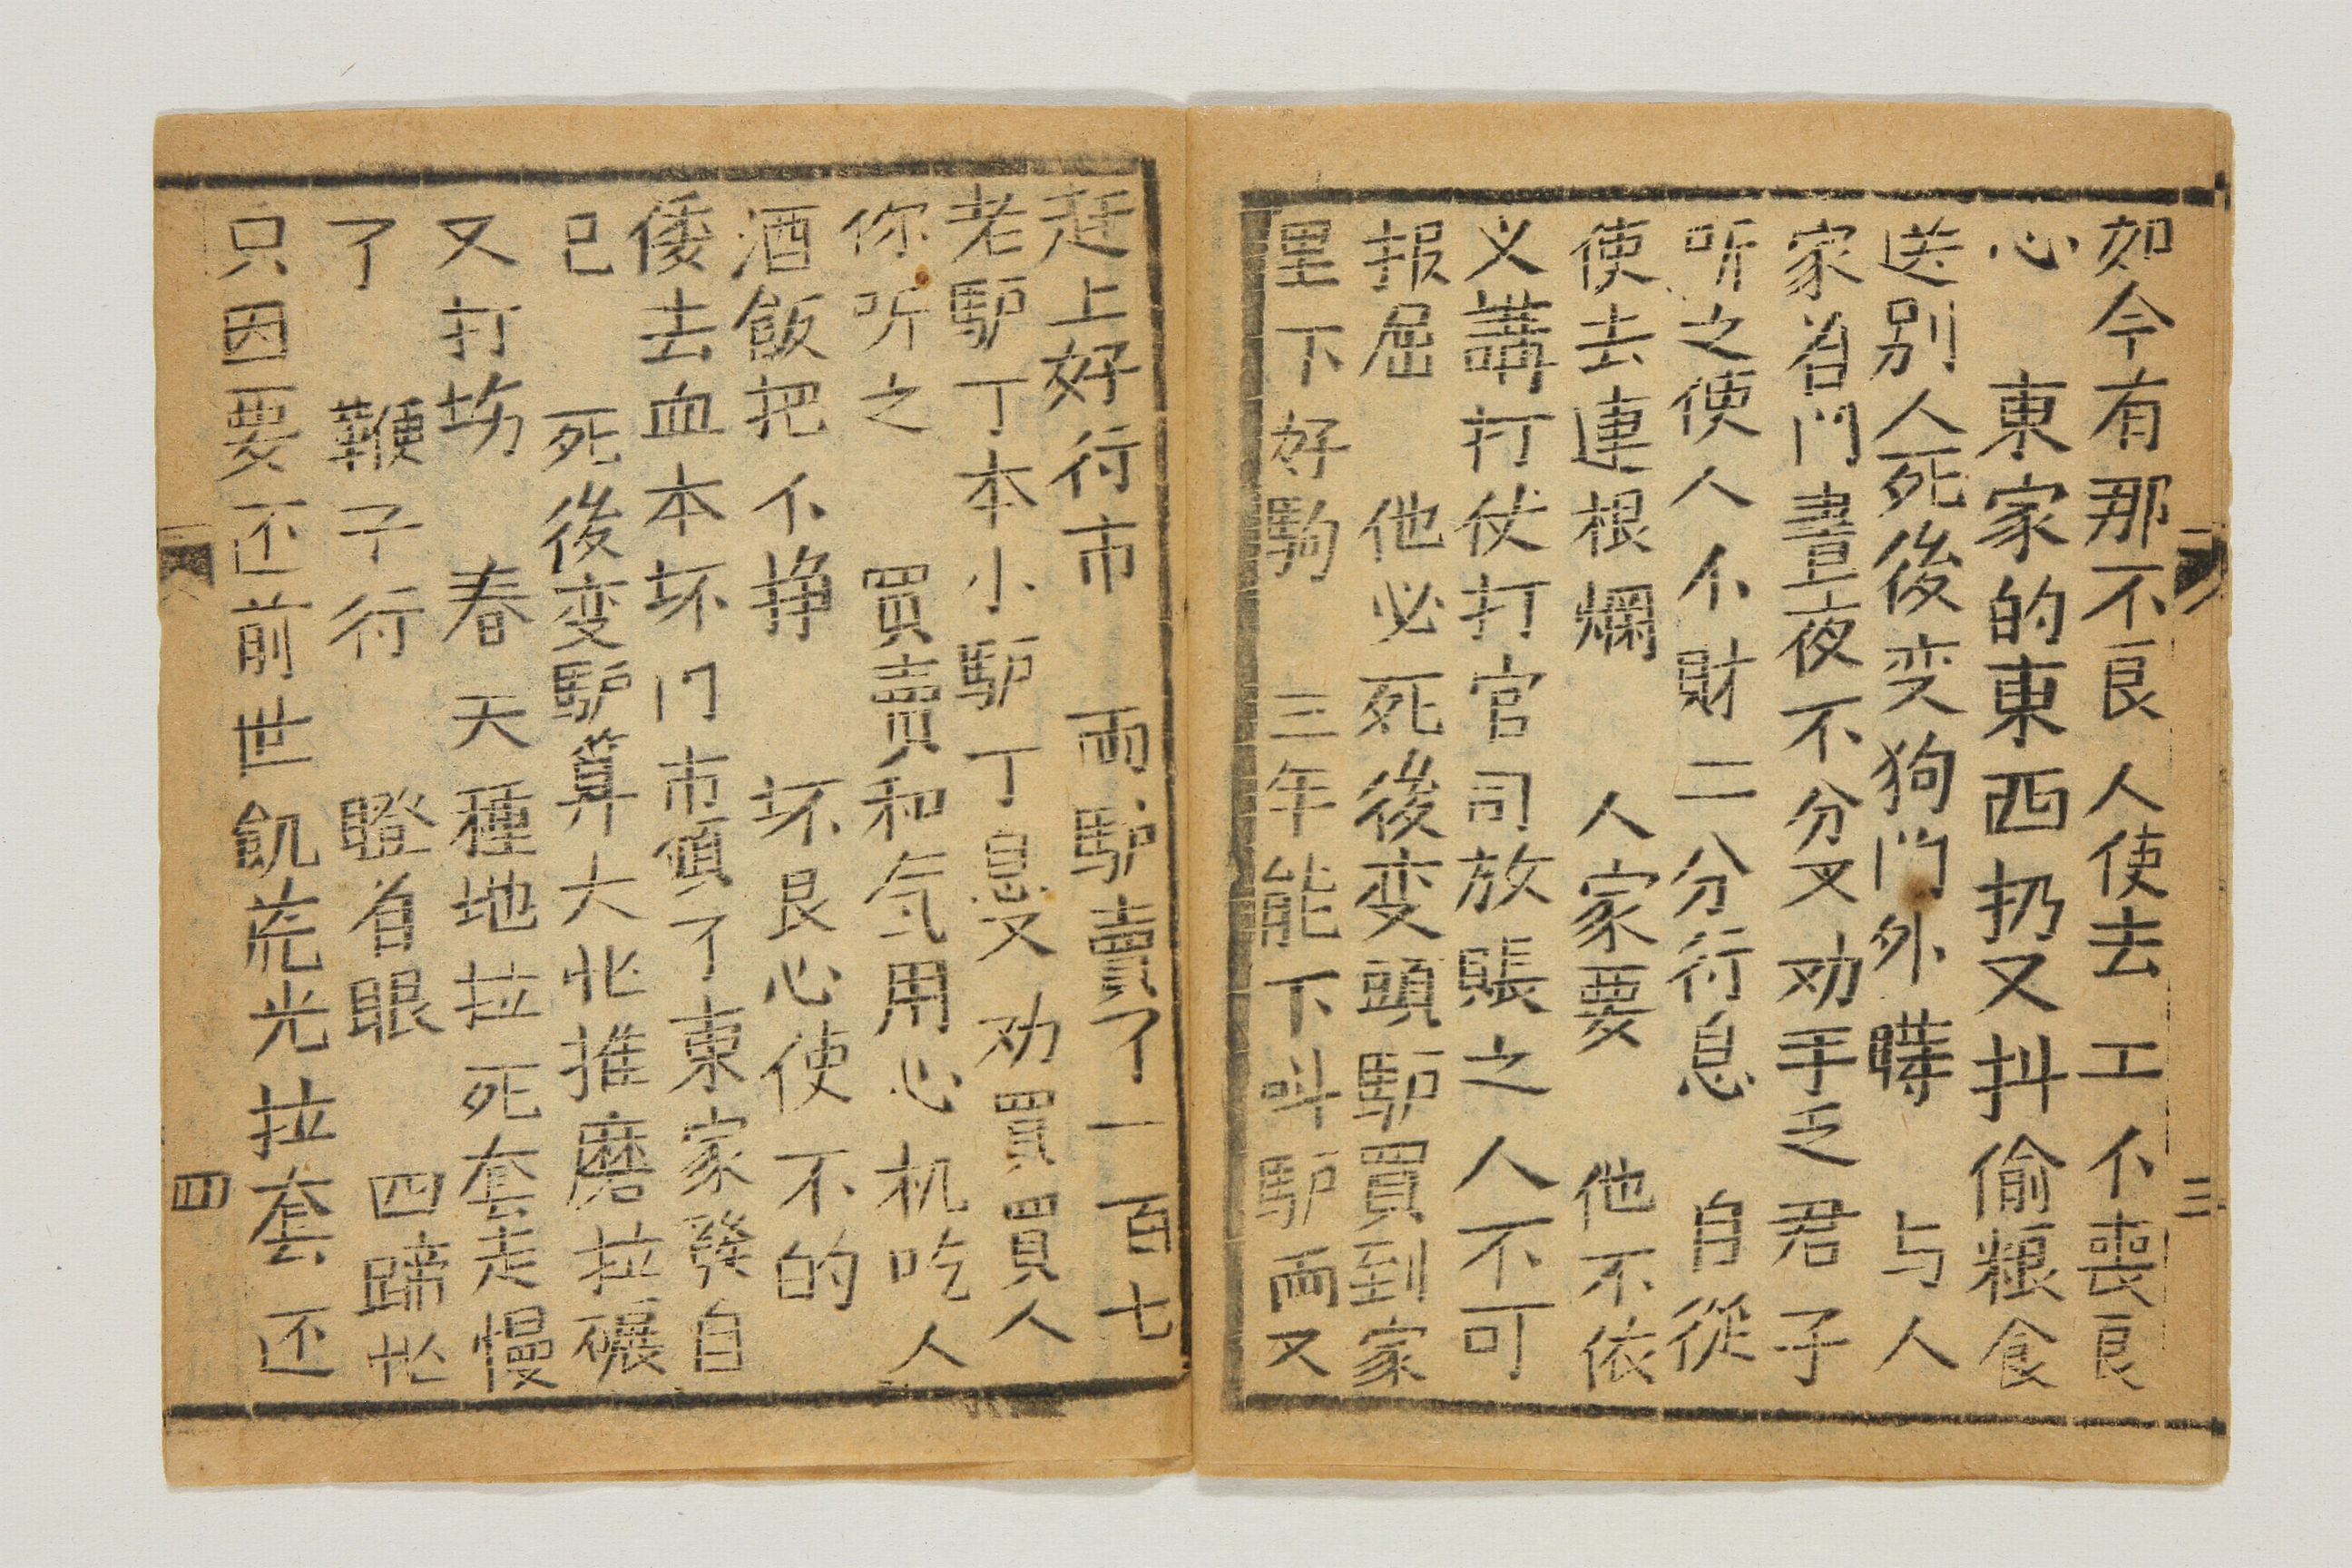 如今有那不良人使去工不喪良
心 東家的東西扔又抖偷糧食
送别人死後变狗門外 与人
家看門晝夜不分叉劝手乏君子
听之使人不財二分行息 自從
使去連根爛 人家要 他不依
义講打仗打官司放賬之人不可
报屈 他必死後变頭馿買到家
里下好駒 三年能下呌馿両又
赶上好行市 両馿賣了一百七
老馿丁本小馿丁息又劝買買人
你听之 買賣和气用心机吃人
酒飯把不挣 坏良心使不的
倭去血本坏门市傾了東家發自
己 死後变馿算大化推磨拉碾
又打场 春天種地拉死套走慢
了 鞭子行 瞪着眼 四蹄忙
只因要还前世飢荒光拉套还
三
四